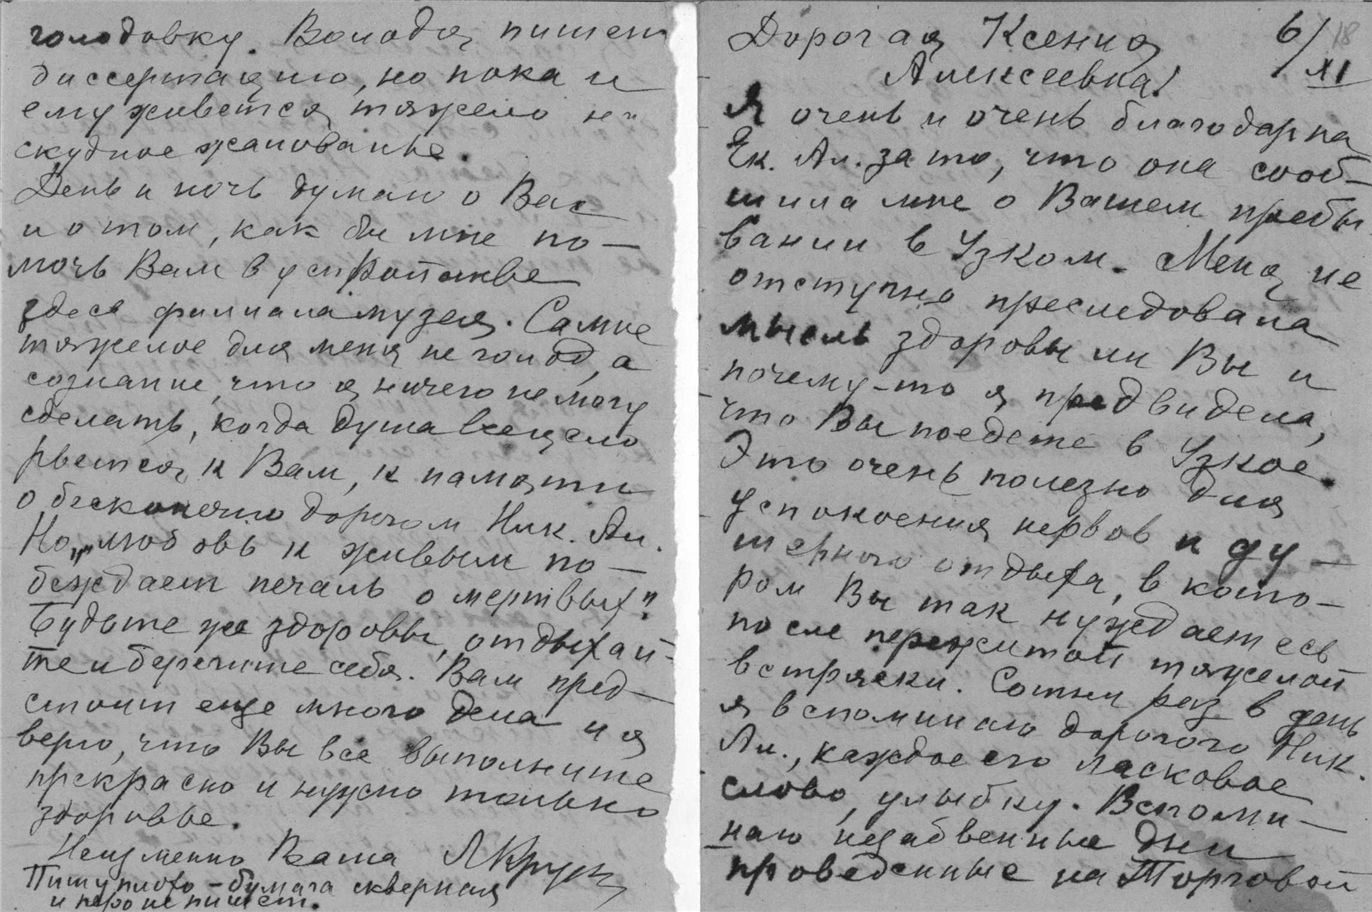 голодовку. Володя пишет
диссертацию, но пока и
ему живется тяжело на
скудное жалованье.
День и ночь думаю о Вас
и о том, как бы мне по-
мочь Вам в устройстве
здесь филиала музея. Самое
тяжелое для меня не голод, а
сознание, что я ничего не могу
сделать, когда душа всецело
рвется к Вам, к памяти
о бесконечно дорогом Ник. Ал.
Но „любовь к живым по-
беждает печаль о мертвых".
Будьте же здоровы, отдыхай-
те и берегите себя. Вам пред-
стоит еще много дела и я
верю, что Вы все выполните
прекрасно и нужно только
здоровье.
Неизменно Ваша ЛКруг
Пишу плохо – бумага скверная
и перо не пишет.
Дорогая Ксения 6/XI 18
Алексеевна!
Я очень и очень благодарна
Ек. Ал. за то, что она сооб-
щила мне о Вашем пребы
вании в Узком. Меня не
отступно преследовала
мысль здоровы ли Вы и
почему-то я предвидела,
что Вы поедете в Узкое.
Это очень полезно для
успокоения нервов и ду-
шевного отдыха, в кото-
ром Вы так нуждаетесь
после пережитой тяжелой
встряски. Сотни раз в день
я вспоминаю дорогого Ник.
Ал., каждое его ласковое
слово, улыбку. Вспоми-
наю незабвенные дни
проведенные на Торговой